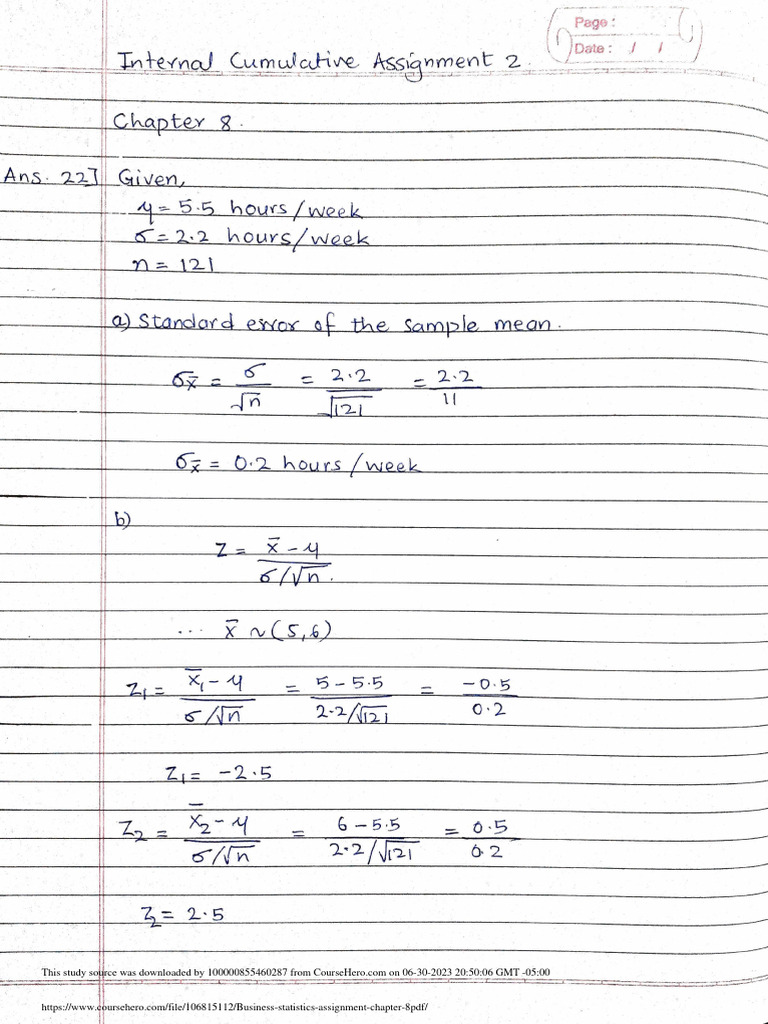 Page :
Date : / /
Internal Cumulative Assignment 2.
Chapter 8.
Ans. 22] Given,
μ = 5.5 hours/week
σ = 2.2 hours/week
n = 121
a) Standard error of the sample mean.
σx̄ = σ/√n = 2.2/√121 = 2.2/11
σx̄ = 0.2 hours/week
b)
Z = (x̄ - μ)/(σ/√n).
... x̄ ~ (5,6)
Z1 = (x̄1 - μ)/(σ/√n) = (5 - 5.5)/(2.2/√121) = -0.5/0.2
Z1 = -2.5
Z2 = (x̄2 - μ)/(σ/√n) = (6 - 5.5)/(2.2/√121) = 0.5/0.2
Z2 = 2.5
This study source was downloaded by 100000855460287 from CourseHero.com on 06-30-2023 20:50:06 GMT -05:00
https://www.coursehero.com/file/106815112/Business-statistics-assignment-chapter-8pdf/